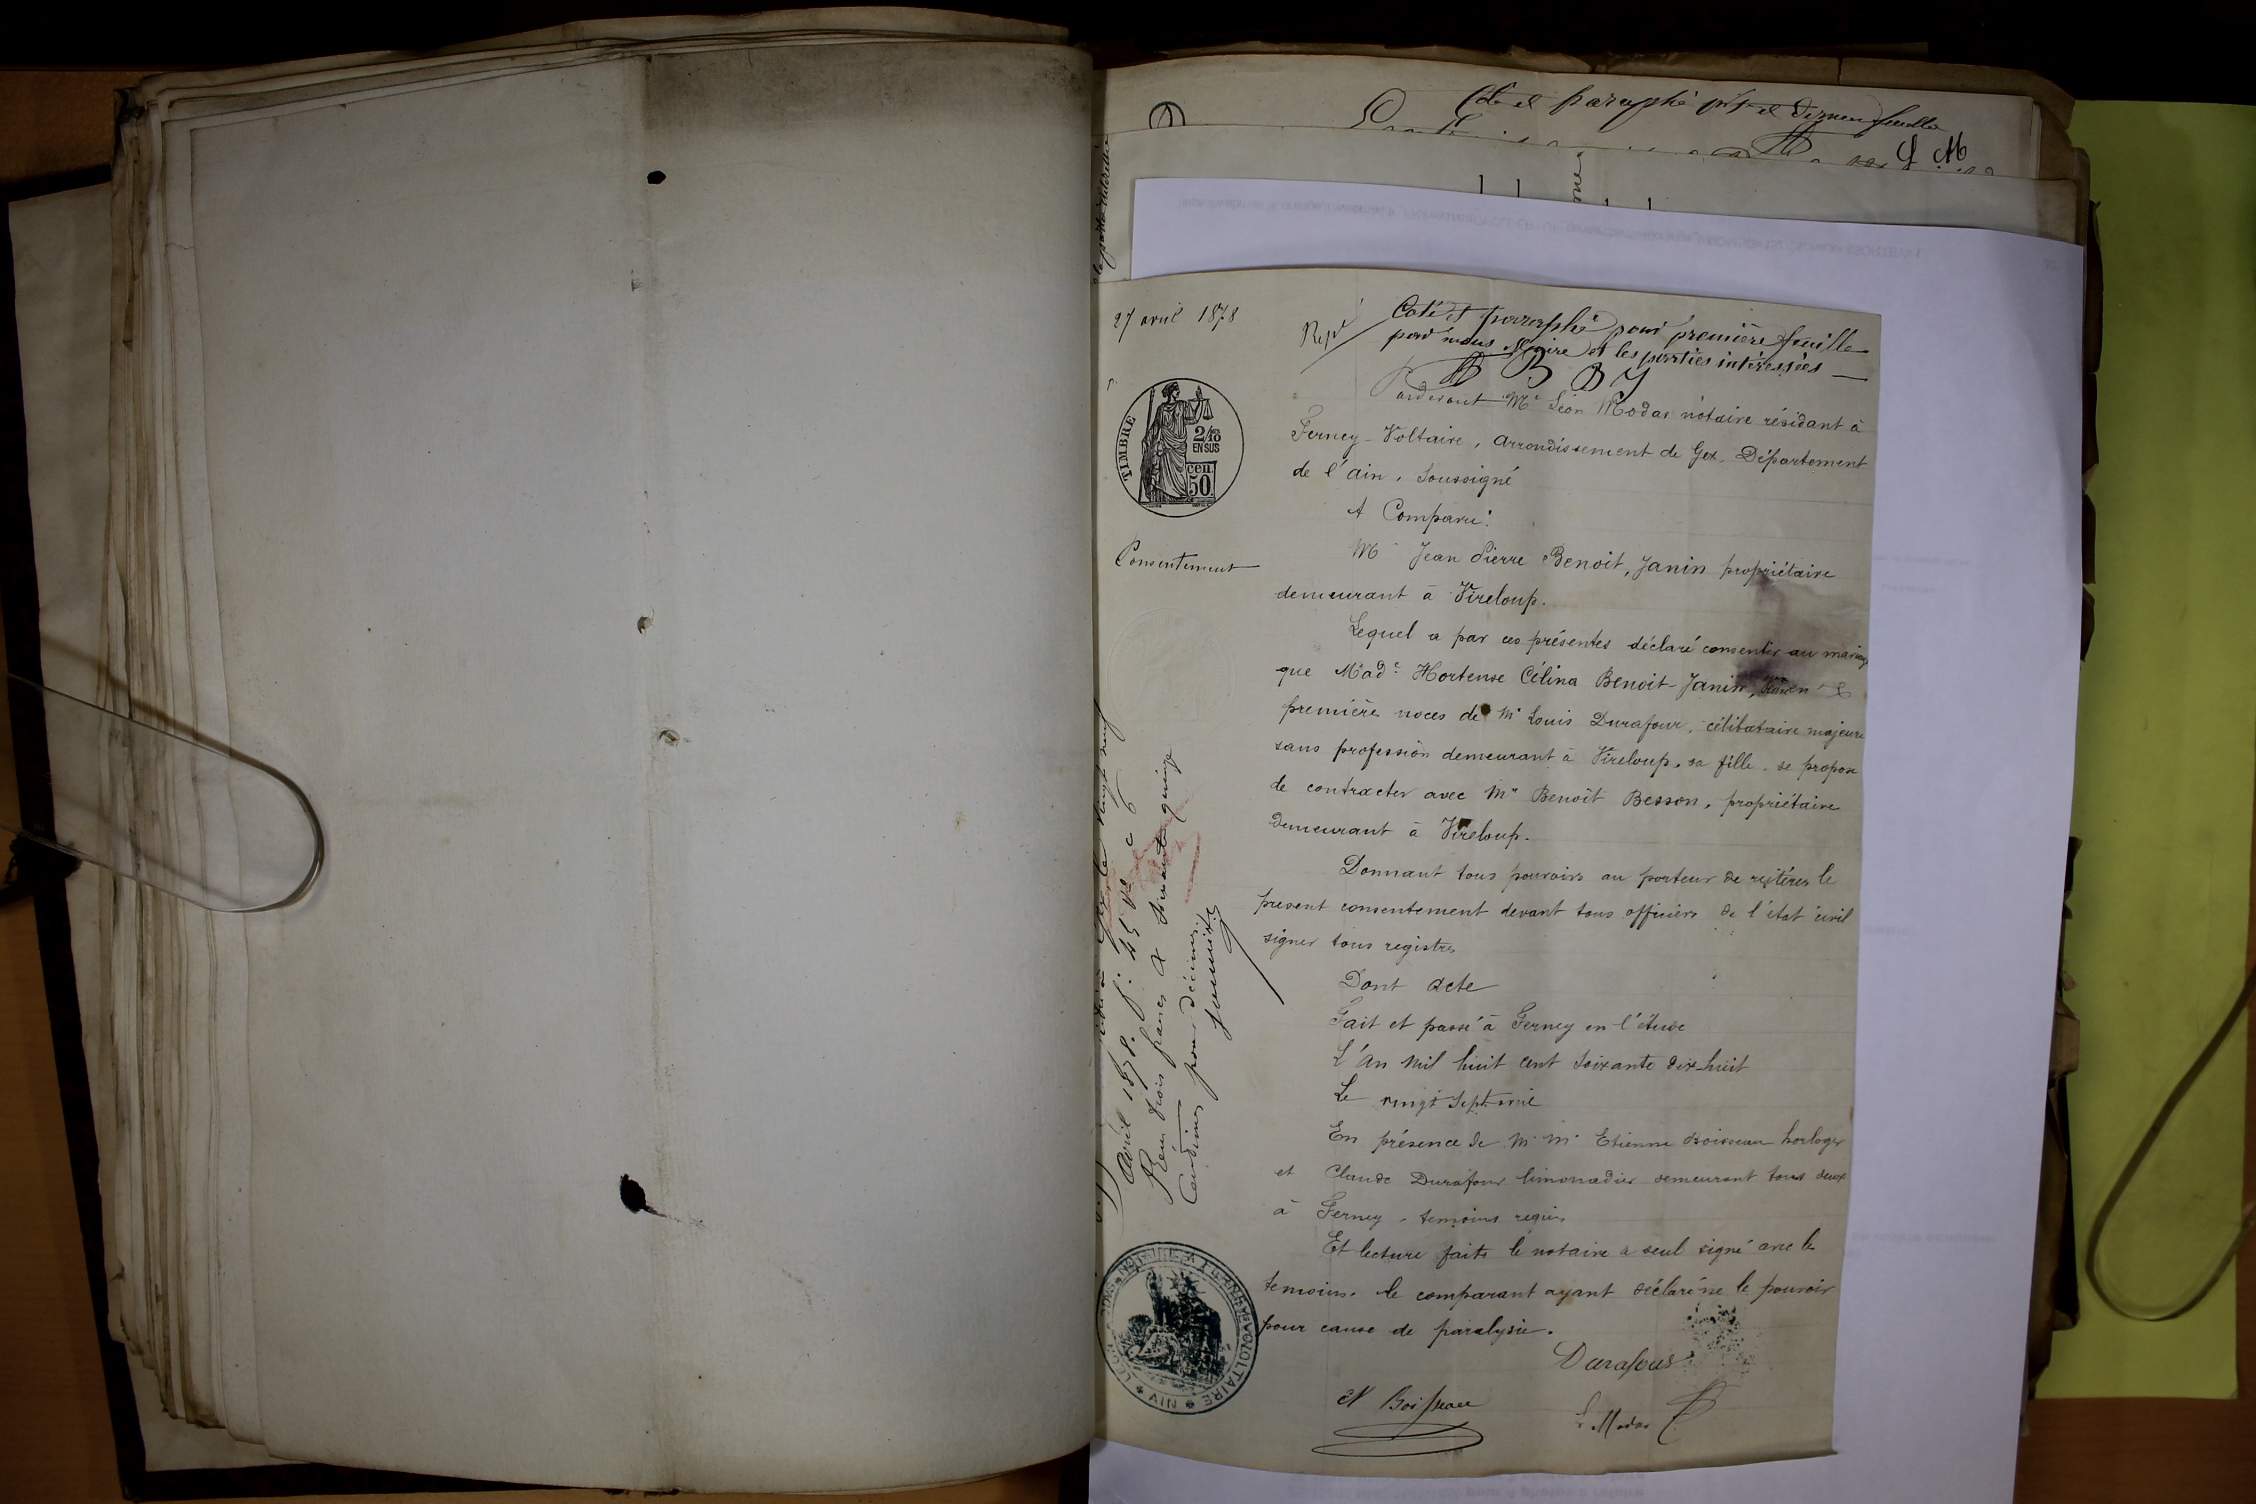 Coté et paraphé pr 1re et dernière feuille
L M
27 avril 1878
Repre
Coté et paraphé pour première feuille
par nous Maire et les parties intéressées
B B J
TIMBRE
2/10
EN SUS
50 cen.
Pardevant Me Léon Modas notaire résidant à
Ferney-Voltaire, arrondissement de Gex, Département
de l'ain, soussigné
A Comparu:
Consentement
Mr Jean Pierre Benoit, Janin propriétaire
demeurant à Vireloup.
Lequel a par ces présentes déclaré consentir au mariage
que Made Hortense Célina Benoit-Janin, en
première noces de Mr Louis Durafour, célibataire majeure
sans profession demeurant à Vireloup, sa fille, se propose
de contracter avec Mr Benoit Besson, propriétaire
demeurant à Vireloup.
Donnant tous pouvoirs au porteur de réitérer le
present consentement devant tous officiers de l'état civil
signer tous registres
Dont acte
Fait et passé à Ferney en l'étude
L'an mil huit cent soixante dix-huit
Le vingt sept avril
En présence de M. M. Etienne Boisseau horloger
et Claude Durafour limonadier demeurant tous deux
à Ferney, temoins requis
Et lecture faite le notaire a seul signé avec les
temoins, le comparant ayant déclaré ne le pouvoir
pour cause de paralysie.
Durafour
N Boisseau
L. Modas
à Gex le vingt neuf
avril 1878. f: 45 Vo c 6
Reçu trois francs & soixante quinze
centimes pour décimes.
NOTAIRE A FERNEY-VOLTAIRE * AIN *